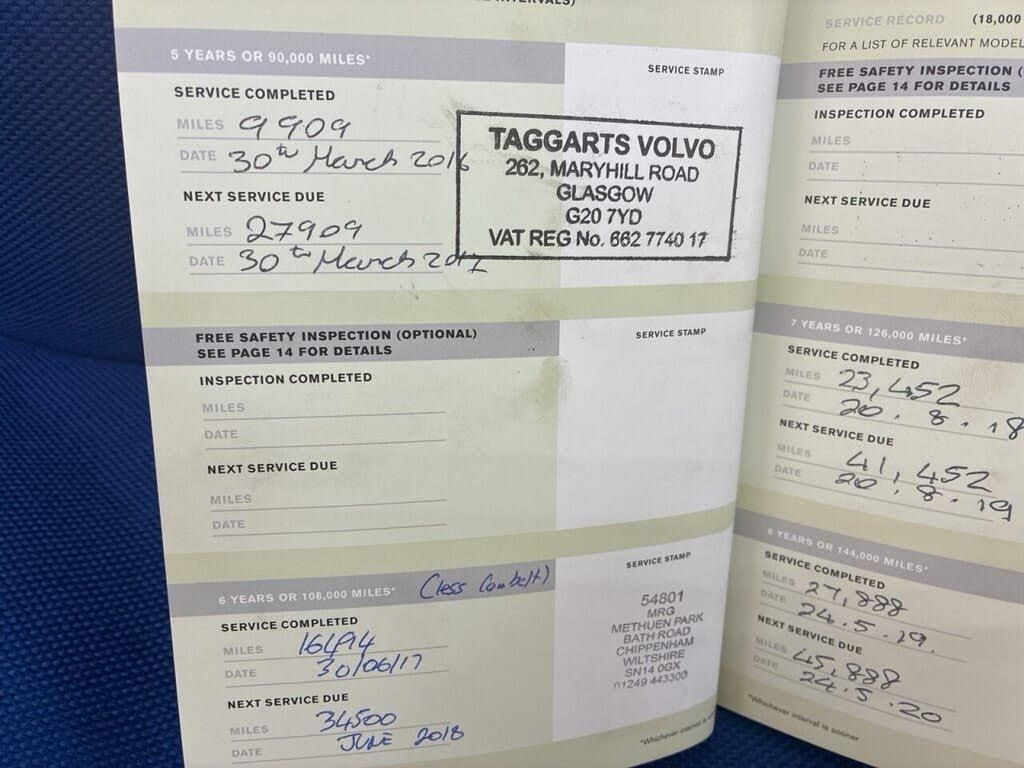 INTERVALS)
5 YEARS OR 90,000 MILES*
SERVICE STAMP
SERVICE COMPLETED
MILES 9909
DATE 30th March 2016
NEXT SERVICE DUE
MILES 27909
DATE 30th March 2017
TAGGARTS VOLVO
262, MARYHILL ROAD
GLASGOW
G20 7YD
VAT REG No. 662 7740 17
FREE SAFETY INSPECTION (OPTIONAL)
SEE PAGE 14 FOR DETAILS
SERVICE STAMP
INSPECTION COMPLETED
MILES
DATE
NEXT SERVICE DUE
MILES
DATE
6 YEARS OR 108,000 MILES*
(less Cambelt)
SERVICE STAMP
SERVICE COMPLETED
MILES 16494
DATE 30/06/17
NEXT SERVICE DUE
MILES 34500
DATE JUNE 2018
54801
MRG
METHUEN PARK
BATH ROAD
CHIPPENHAM
WILTSHIRE
SN14 0GX
01249 443300
*Whichever interval is soo
SERVICE RECORD (18,000
FOR A LIST OF RELEVANT MODEL
FREE SAFETY INSPECTION (
SEE PAGE 14 FOR DETAILS
INSPECTION COMPLETED
MILES
DATE
NEXT SERVICE DUE
MILES
DATE
7 YEARS OR 126,000 MILES*
SERVICE COMPLETED
MILES 23,452
DATE 20.8.18
NEXT SERVICE DUE
MILES 41,452
DATE 20.8.19
8 YEARS OR 144,000 MILES*
SERVICE COMPLETED
MILES 27,888
DATE 24.5.19.
NEXT SERVICE DUE
MILES 45,888
DATE 24.5.20
*Whichever interval is sooner